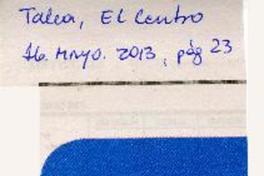 Talca, El Centro
16. Mayo. 2013, pág 23